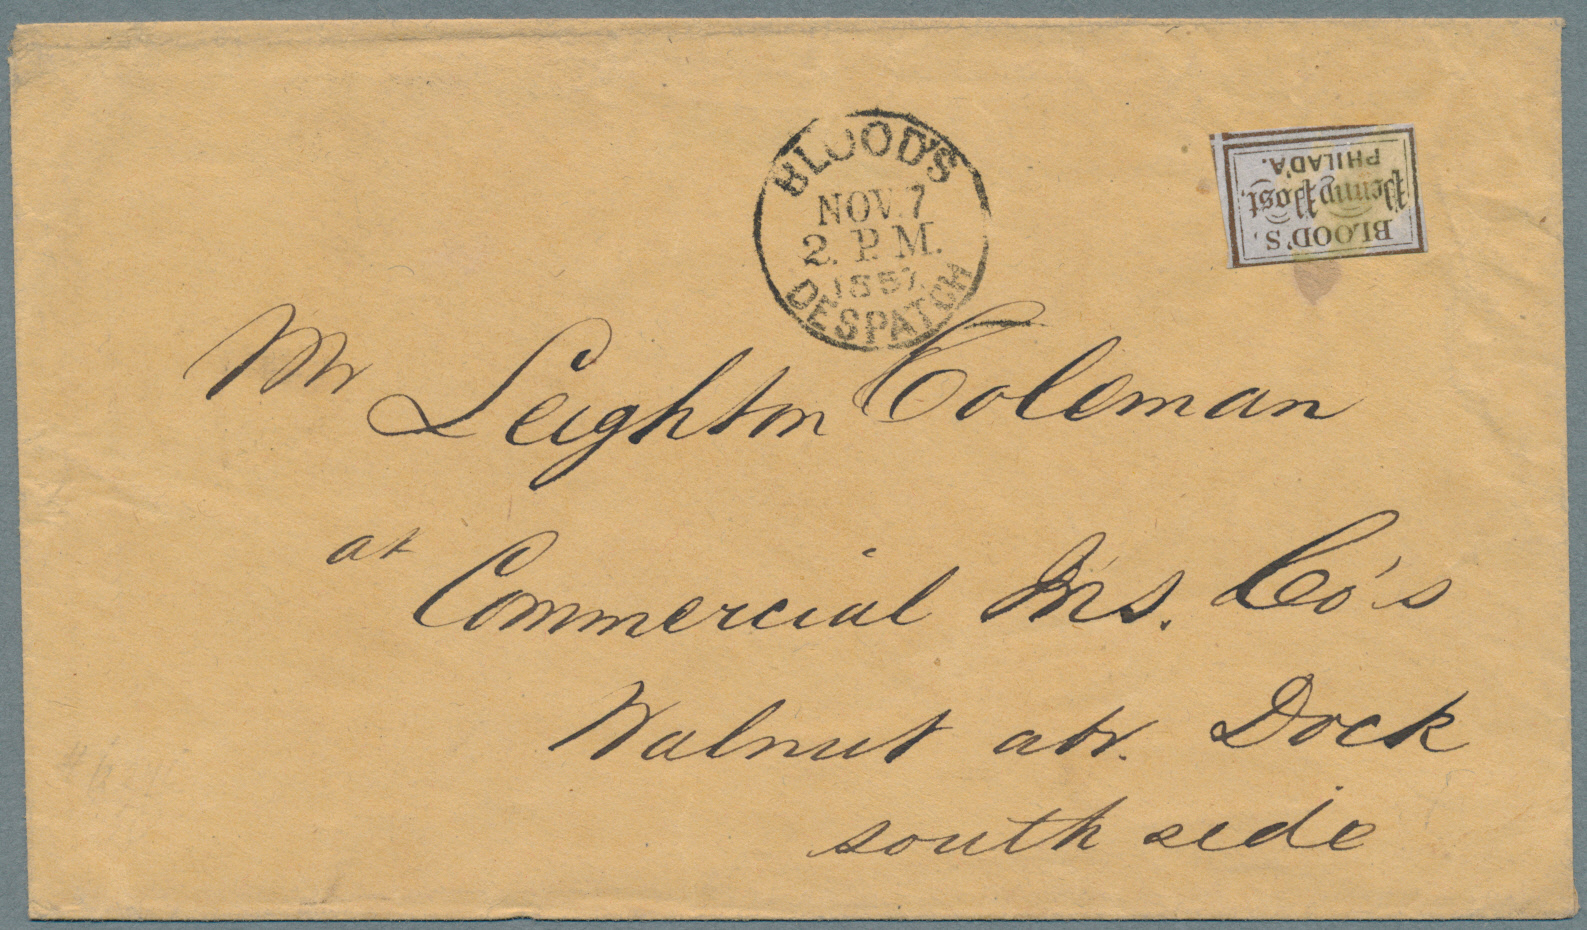 BLOOD'S
NOV. 7
2. P. M.
1857.
DESPATCH
BLOOD'S.
Penny Post.
PHILAD'A.
Mr Leighton Coleman
at
Commercial Ins. Co's
Walnut abv. Dock
south side